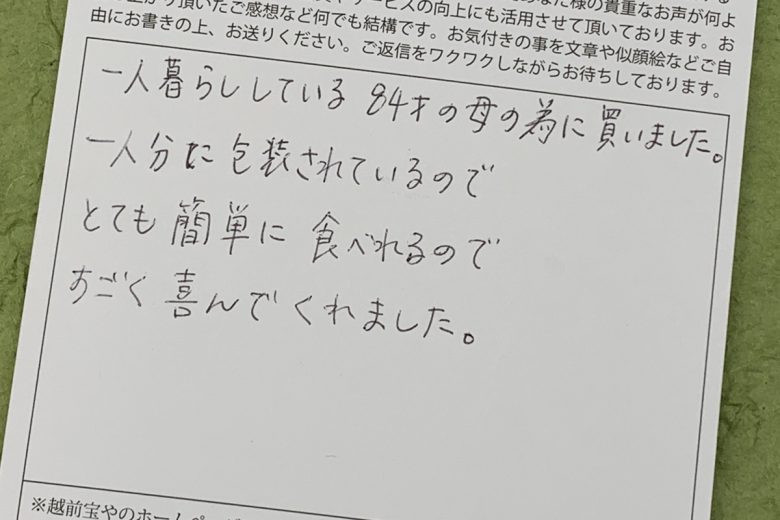 サービスの向上にも活用させて頂いております。お
上がり頂いたご感想など何でも結構です。お気付きの事を文章や似顔絵などご自
由にお書きの上、お送りください。ご返信をワクワクしながらお待ちしております。
一人暮らししている84才の母の為に買いました。
一人分に包装されているので
とても簡単に食べれるので
すごく喜んでくれました。
※越前宝やのホームページ